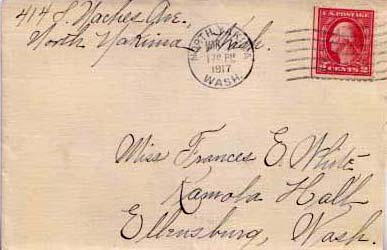 414 S. Naches Ave.,
North Yakima, Wash.
NORTH YAKIMA
MAR
PM
1917
WASH.
U.S. POSTAGE
2 CENTS 2
Miss Frances E. White
Kamola Hall
Ellensburg, Wash.